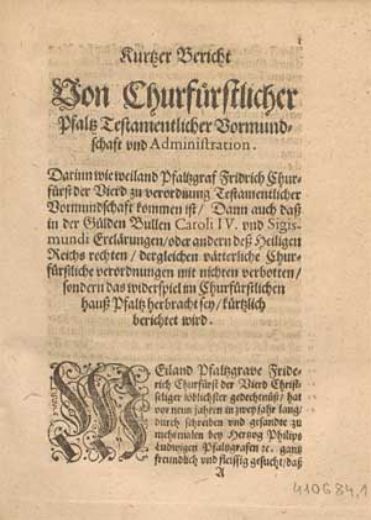 Kurtzer Bericht
Von Churfürstlicher
Pfaltz Testamentlicher Vormund-
schafft vnd Administration.
Darinn wie weiland Pfaltzgraf Fridrich Chur-
fürst der Vierd zu verordnung Testamentlicher
Vormundschafft kommen ist / Dann auch daß
in der Gülden Bullen Caroli IV. vnd Sigis-
mundi Erclärungen / oder andern deß Heiligen
Reichs rechten / dergleichen vätterliche Chur-
fürstliche verordnungen mit nichten verbotten /
sondern das widerspiel im Churfürstlichen
hauß Pfaltz herbracht sey / kürtzlich
berichtet wird.
WEiland Pfaltzgrave Fride-
rich Churfürst der Vierd Christ-
seliger löblichster gedechtnüß / hat
vor neun jahren in zwey jahr lang /
durch schreiben vnd gesandte zu
mehrmalen bey Hertzog Philips
Ludwigen Pfaltzgrafen ꝛc. gantz
freundlich vnd fleissig gesucht / daß
A
410684,1